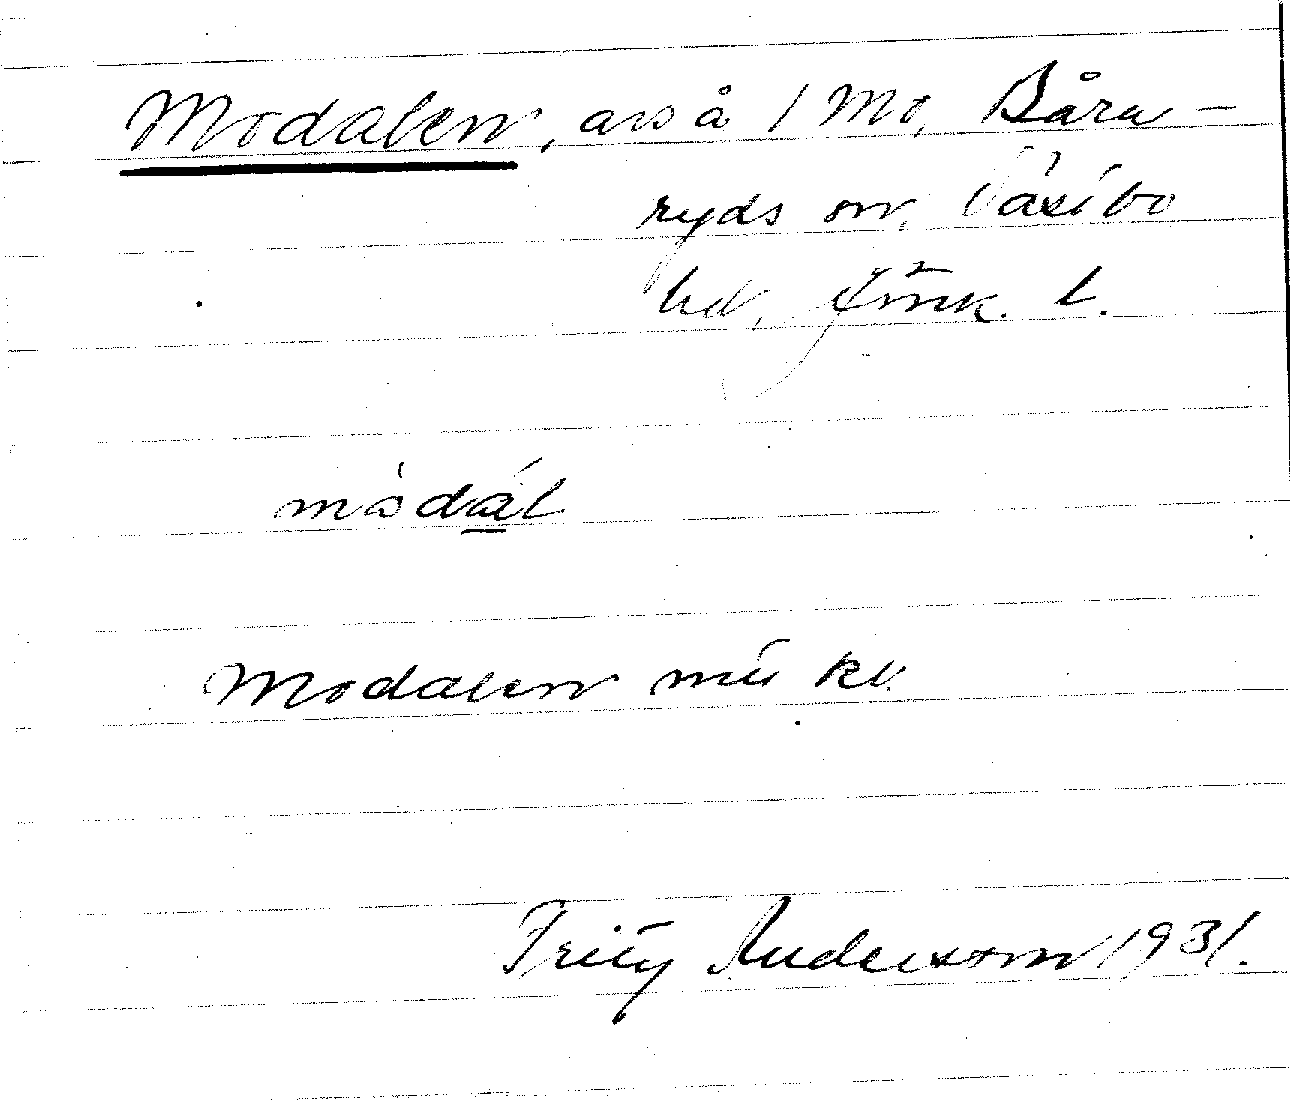 Modalen, avs å 1 Mo, Båra-
ryds sn, Västbo
hd, Jönk. l.
mòdál
Modalen mts kt.
Fritz Anderson 1931.